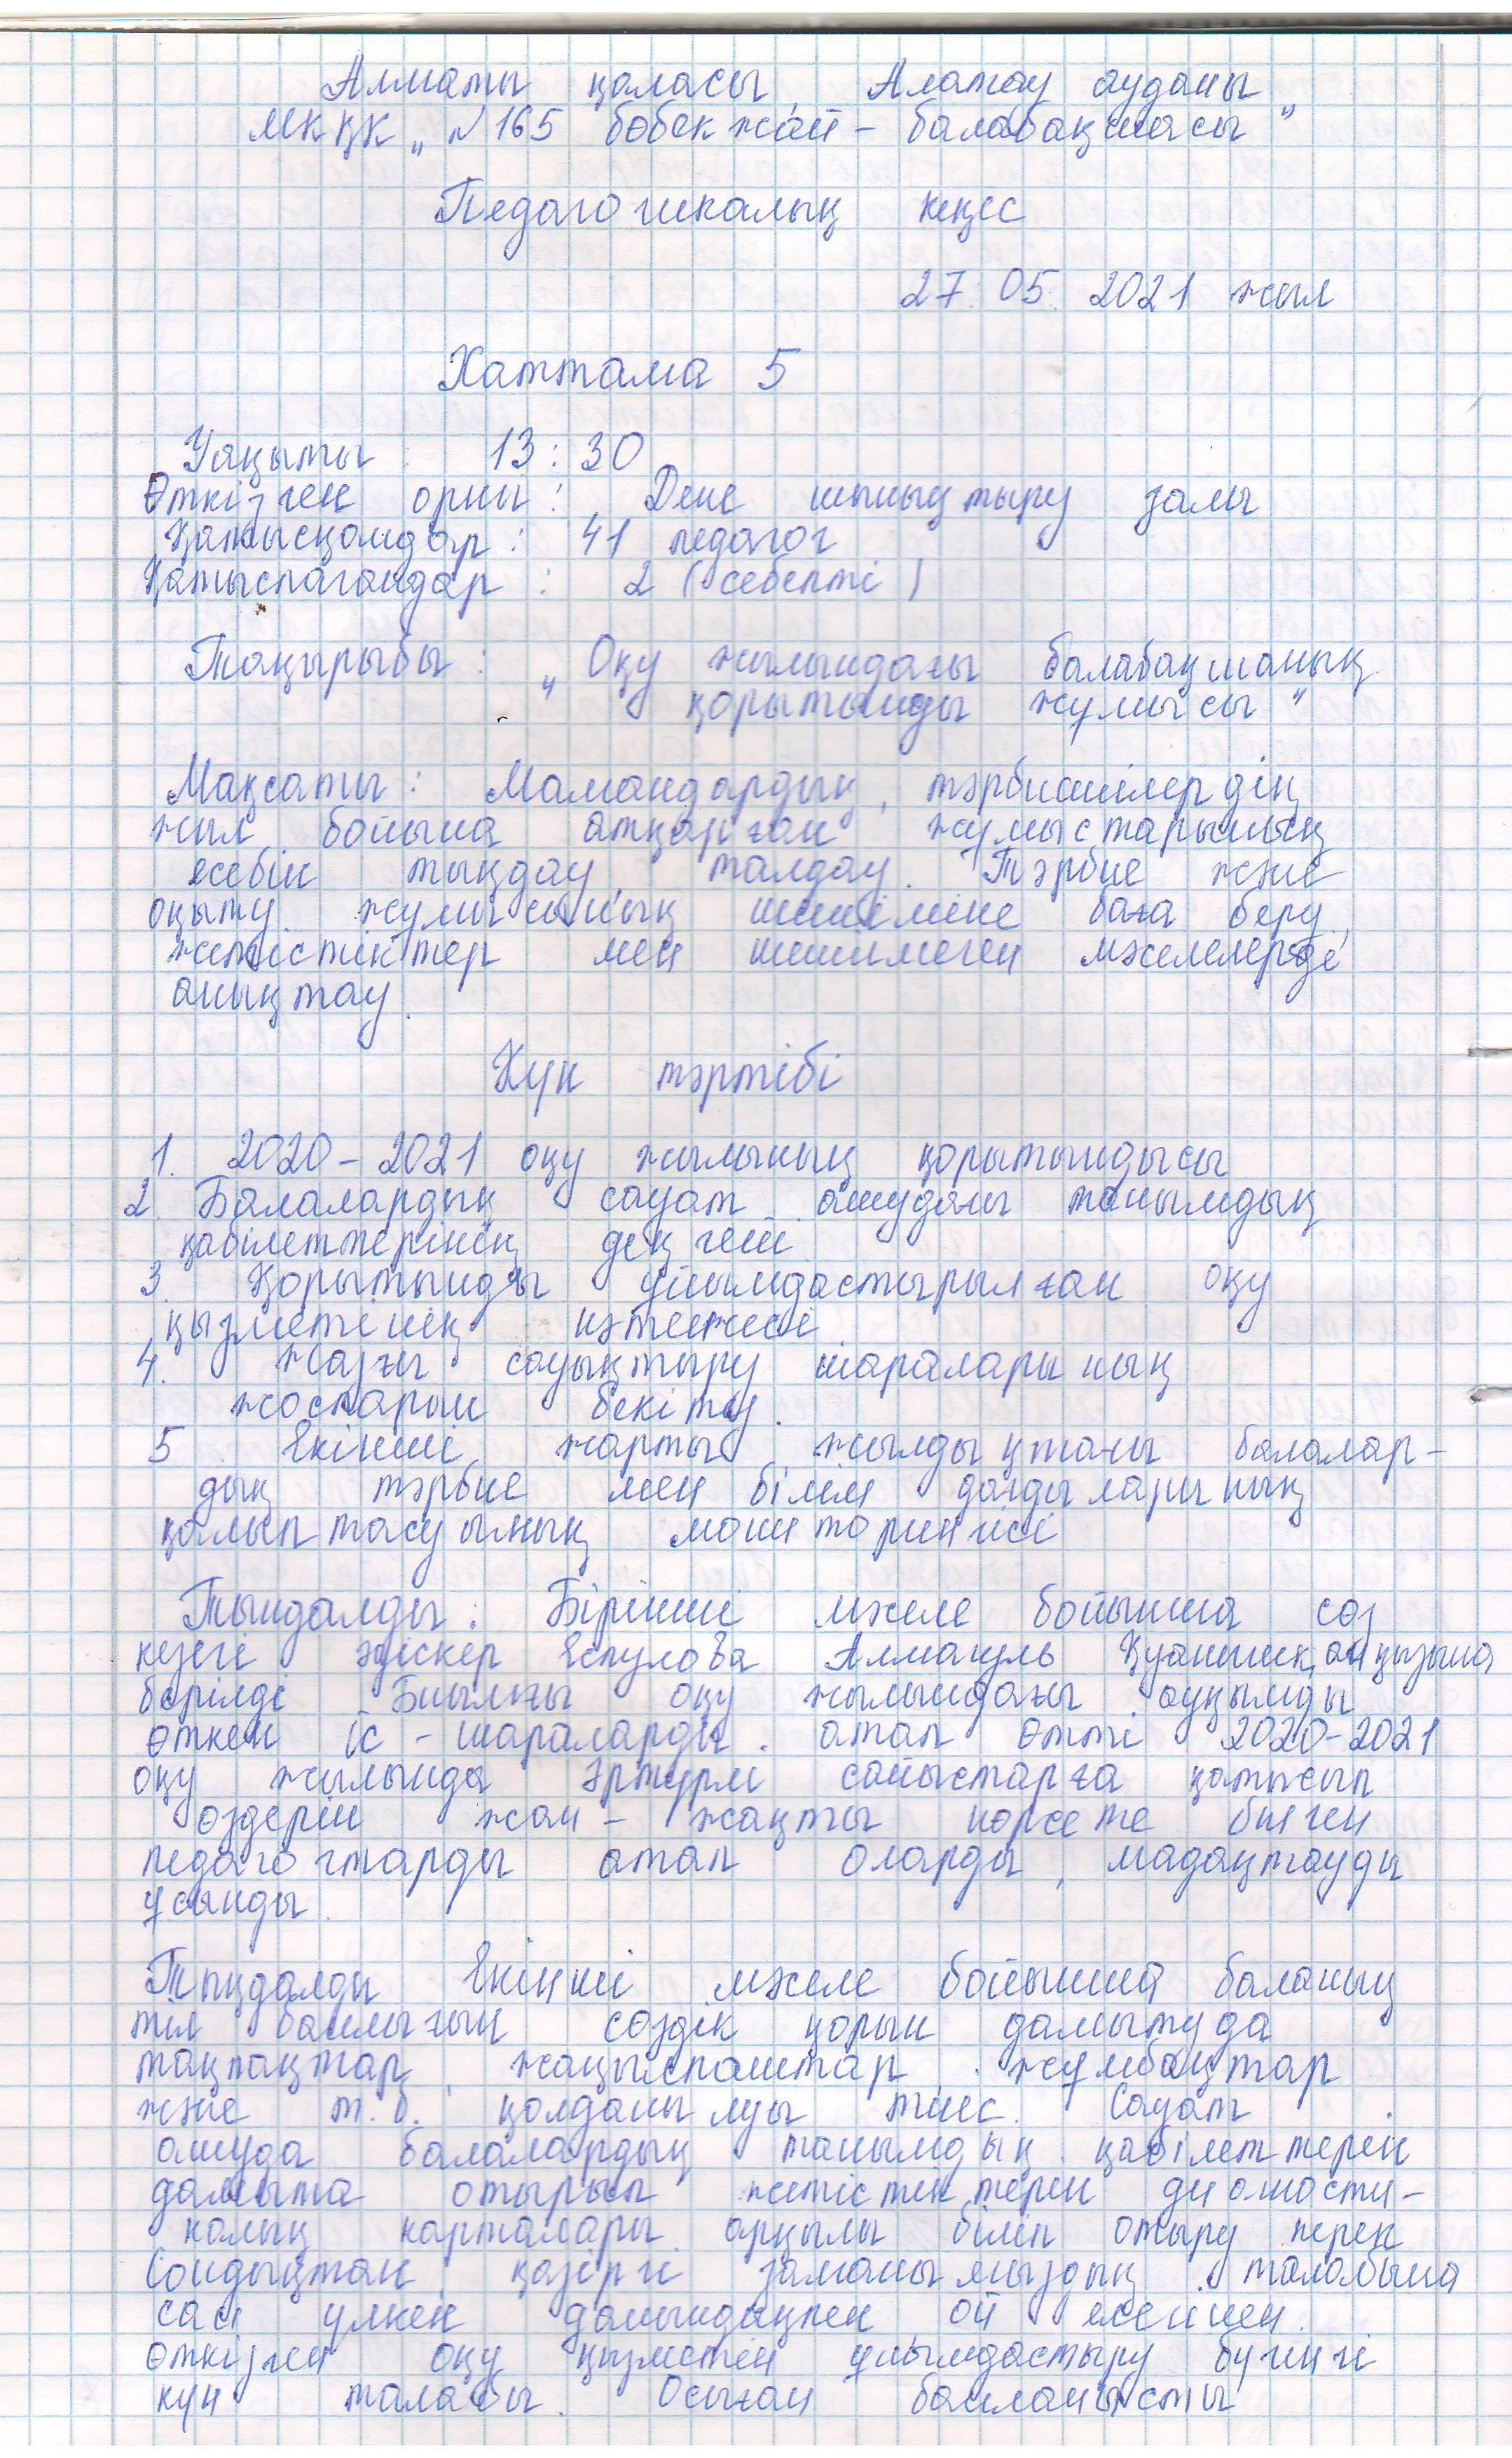 Алматы қаласы, Алатау ауданы
МКҚК „№165 бөбекжай - балабақшасы"
Педагогикалық кеңес
27. 05. 2021 жыл
Хаттама 5
Уақыты: 13:30
Өткізген орны: Дене шынықтыру залы
Қатысқандар: 41 педагог
Қатыспагандар: 2 (себепті)
Тақырыбы: „Оқу жылындағы балабақшаның
қорытынды жұмысы"
Мақсаты: Мамандардың, тәрбиешілердің
жыл бойына атқарған жұмыстарының
есебін тыңдау, талдау. Тәрбие және
оқыту жұмысының шешіміне баға беру,
жетістіктер мен шешілмеген мәселелерді
анықтау.
Күн тәртібі
1. 2020-2021 оқу жылының қорытындысы
2. Балалардың сауат ашудағы танымдық
қабілеттерінің деңгейі.
3. Қорытынды ұйымдастырылған оқу
қызметінің нәтижесі.
4. Жазғы сауықтыру шараларының
жоспарын бекіту.
5 Екінші жарты жылдықтағы балалар-
дың тәрбие мен білім дағдыларының
қалыптасуының мониторингісі
Тыңдалды: Бірінші мәселе бойынша сөз
кезегі әдіскер Еспулова Алмагуль
берілді. Биылғы оқу жылындағы ауқымды
өткен іс-шараларды атап өтті. 2020-2021
оқу жылында әртүрлі сайыстарға қатысып
өздерін жан-жақты көрсете білген
педагогтарды атап оларды, мадақтауды
ұсынды.
Тыңдалды Екінші мәселе бойынша баланың
тіл байлығын сөздік қорын дамытуда
тақпақтар, жаңылпаштар, жұмбақтар
және т.б. қолданылуы тиіс. Сауат
ашуда балалардың танымдық қабілеттерен
дамыта отырып жетістіктерен диагности-
калық карталары арқылы біліп отыру керек
Сондықтан, қазіргі заманымыздың талабына
сай үлкен дайындықпен ой елегінен
өткізген оқу қызметін ұйымдастыру бүгінгі
күн талабы. Осыған байланысты